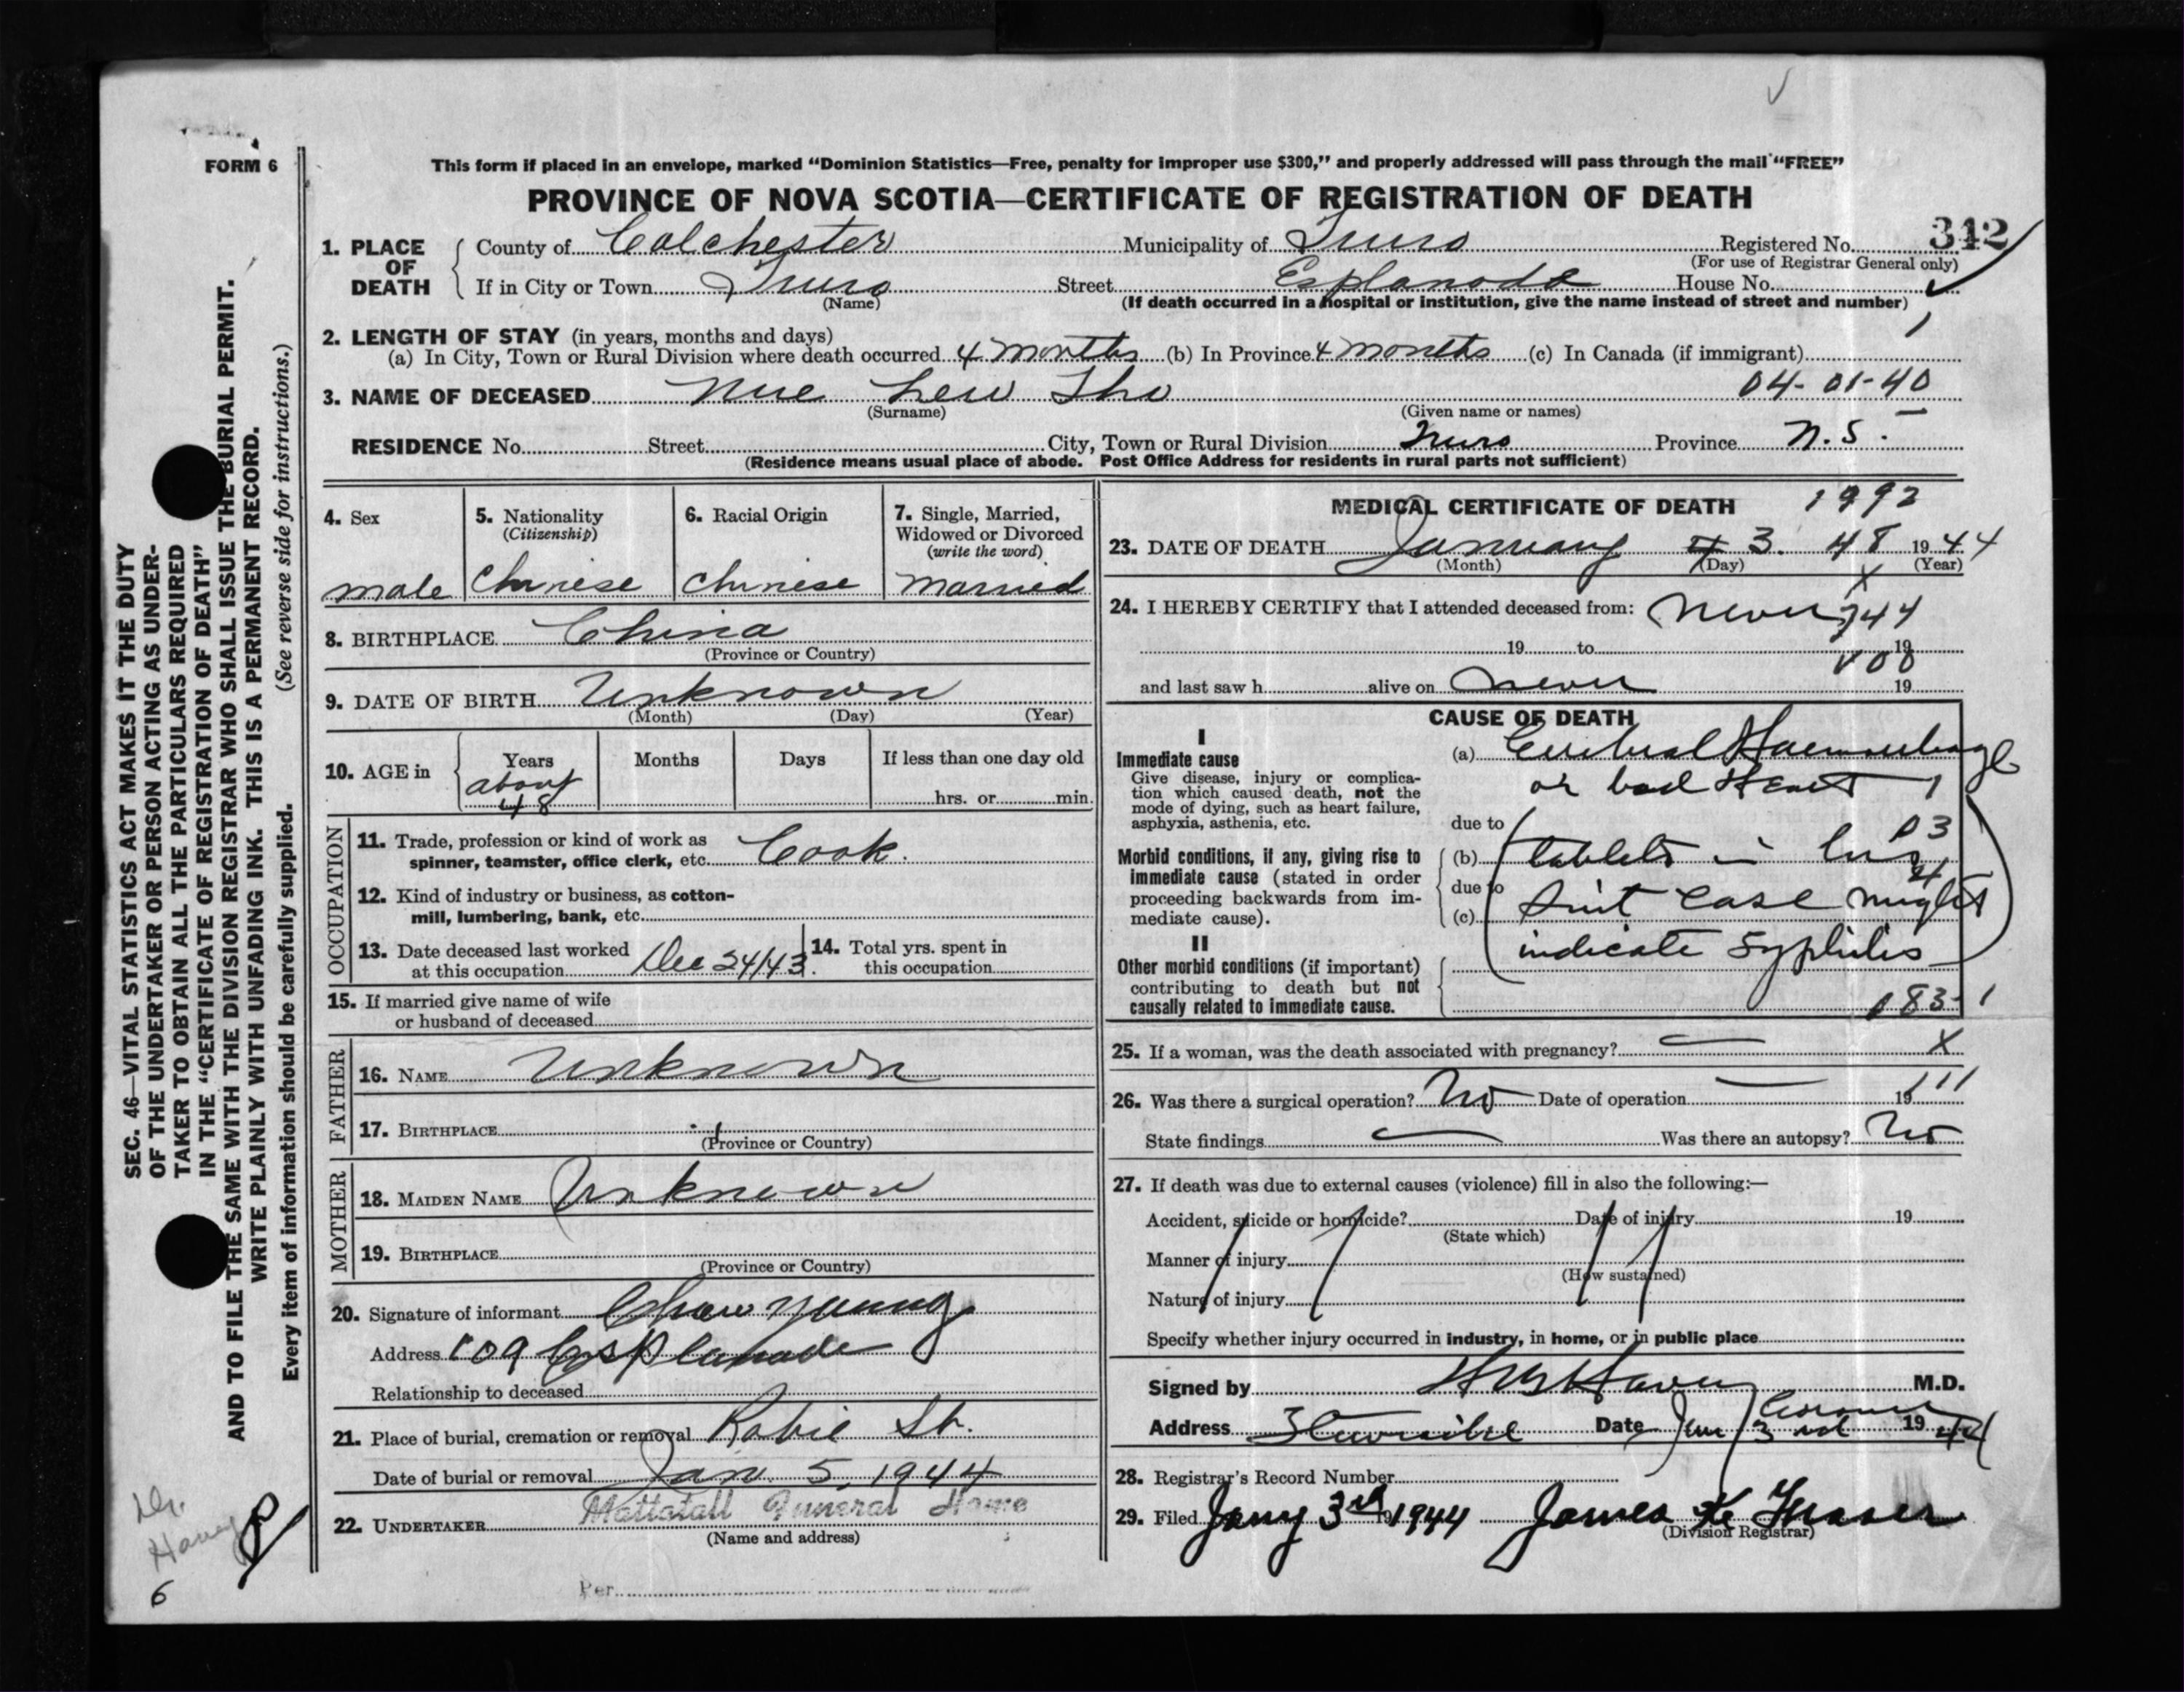 FORM 6
This form if placed in an envelope, marked “Dominion Statistics—Free, penalty for improper use $300,” and properly addressed will pass through the mail “FREE”
PROVINCE OF NOVA SCOTIA—CERTIFICATE OF REGISTRATION OF DEATH
1. PLACE OF DEATH County of Colchester Municipality of Truro Registered No. 342
(For use of Registrar General only)
If in City or Town Truro Street Esplanade House No.
(Name) (If death occurred in a hospital or institution, give the name instead of street and number)
2. LENGTH OF STAY (in years, months and days) 1
(a) In City, Town or Rural Division where death occurred 4 months (b) In Province 4 months (c) In Canada (if immigrant)
04-01-40
3. NAME OF DECEASED Mue Lew Sho
(Surname) (Given name or names)
RESIDENCE No. Street City, Town or Rural Division Truro Province N.S.
(Residence means usual place of abode. Post Office Address for residents in rural parts not sufficient)
4. Sex male
5. Nationality (Citizenship) Chinese
6. Racial Origin Chinese
7. Single, Married, Widowed or Divorced (write the word) Married
8. BIRTHPLACE China
(Province or Country)
9. DATE OF BIRTH Unknown
(Month) (Day) (Year)
10. AGE in Years about 48 Months Days If less than one day old
hrs. or min.
OCCUPATION
11. Trade, profession or kind of work as
spinner, teamster, office clerk, etc. Cook.
12. Kind of industry or business, as cotton-
mill, lumbering, bank, etc.
13. Date deceased last worked
at this occupation Dec 24/43.
14. Total yrs. spent in
this occupation
15. If married give name of wife
or husband of deceased
FATHER
16. NAME Unknown
17. BIRTHPLACE
(Province or Country)
MOTHER
18. MAIDEN NAME Unknown
19. BIRTHPLACE
(Province or Country)
20. Signature of informant Chow Young
Address 109 Esplanade
Relationship to deceased
21. Place of burial, cremation or removal Robie St.
Date of burial or removal Jan. 5, 1944
22. UNDERTAKER Mattatall Funeral Home
(Name and address)
Per
MEDICAL CERTIFICATE OF DEATH 1992
23. DATE OF DEATH January 3. 48 1944
(Month) (Day) (Year)
X
24. I HEREBY CERTIFY that I attended deceased from: never 744
19 to 19
V00
and last saw h alive on never 19
CAUSE OF DEATH
I
Immediate cause
Give disease, injury or complica-
tion which caused death, not the
mode of dying, such as heart failure,
asphyxia, asthenia, etc.
(a) Cerebral Haemorrhage
or bad Heart 1
due to 03
Morbid conditions, if any, giving rise to
immediate cause (stated in order
proceeding backwards from im-
mediate cause).
(b) tablets in his
due to 4
(c) suit case might
indicate Syphilis
II
Other morbid conditions (if important)
contributing to death but not
causally related to immediate cause.
083-1
25. If a woman, was the death associated with pregnancy? X
26. Was there a surgical operation? No Date of operation 19 111
State findings Was there an autopsy? No
27. If death was due to external causes (violence) fill in also the following:—
Accident, suicide or homicide? Date of injury 19
(State which)
Manner of injury
(How sustained)
Nature of injury
Specify whether injury occurred in industry, in home, or in public place
Signed by M.D.
Coroner
Address Stewiacke Date Jan 3rd 1944
28. Registrar's Record Number
29. Filed Jany 3rd 1944 James K Fraser
(Division Registrar)
SEC. 46—VITAL STATISTICS ACT MAKES IT THE DUTY
OF THE UNDERTAKER OR PERSON ACTING AS UNDER-
TAKER TO OBTAIN ALL THE PARTICULARS REQUIRED
IN THE “CERTIFICATE OF REGISTRATION OF DEATH”
AND TO FILE THE SAME WITH THE DIVISION REGISTRAR WHO SHALL ISSUE THE BURIAL PERMIT.
WRITE PLAINLY WITH UNFADING INK. THIS IS A PERMANENT RECORD.
Every item of information should be carefully supplied. (See reverse side for instructions.)
Dr.
6